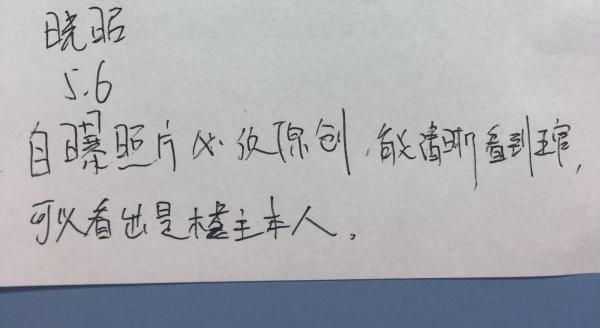 晓昭
5.6
自曝照片必须原创,能清晰看到五官,
可以看出是楼主本人。